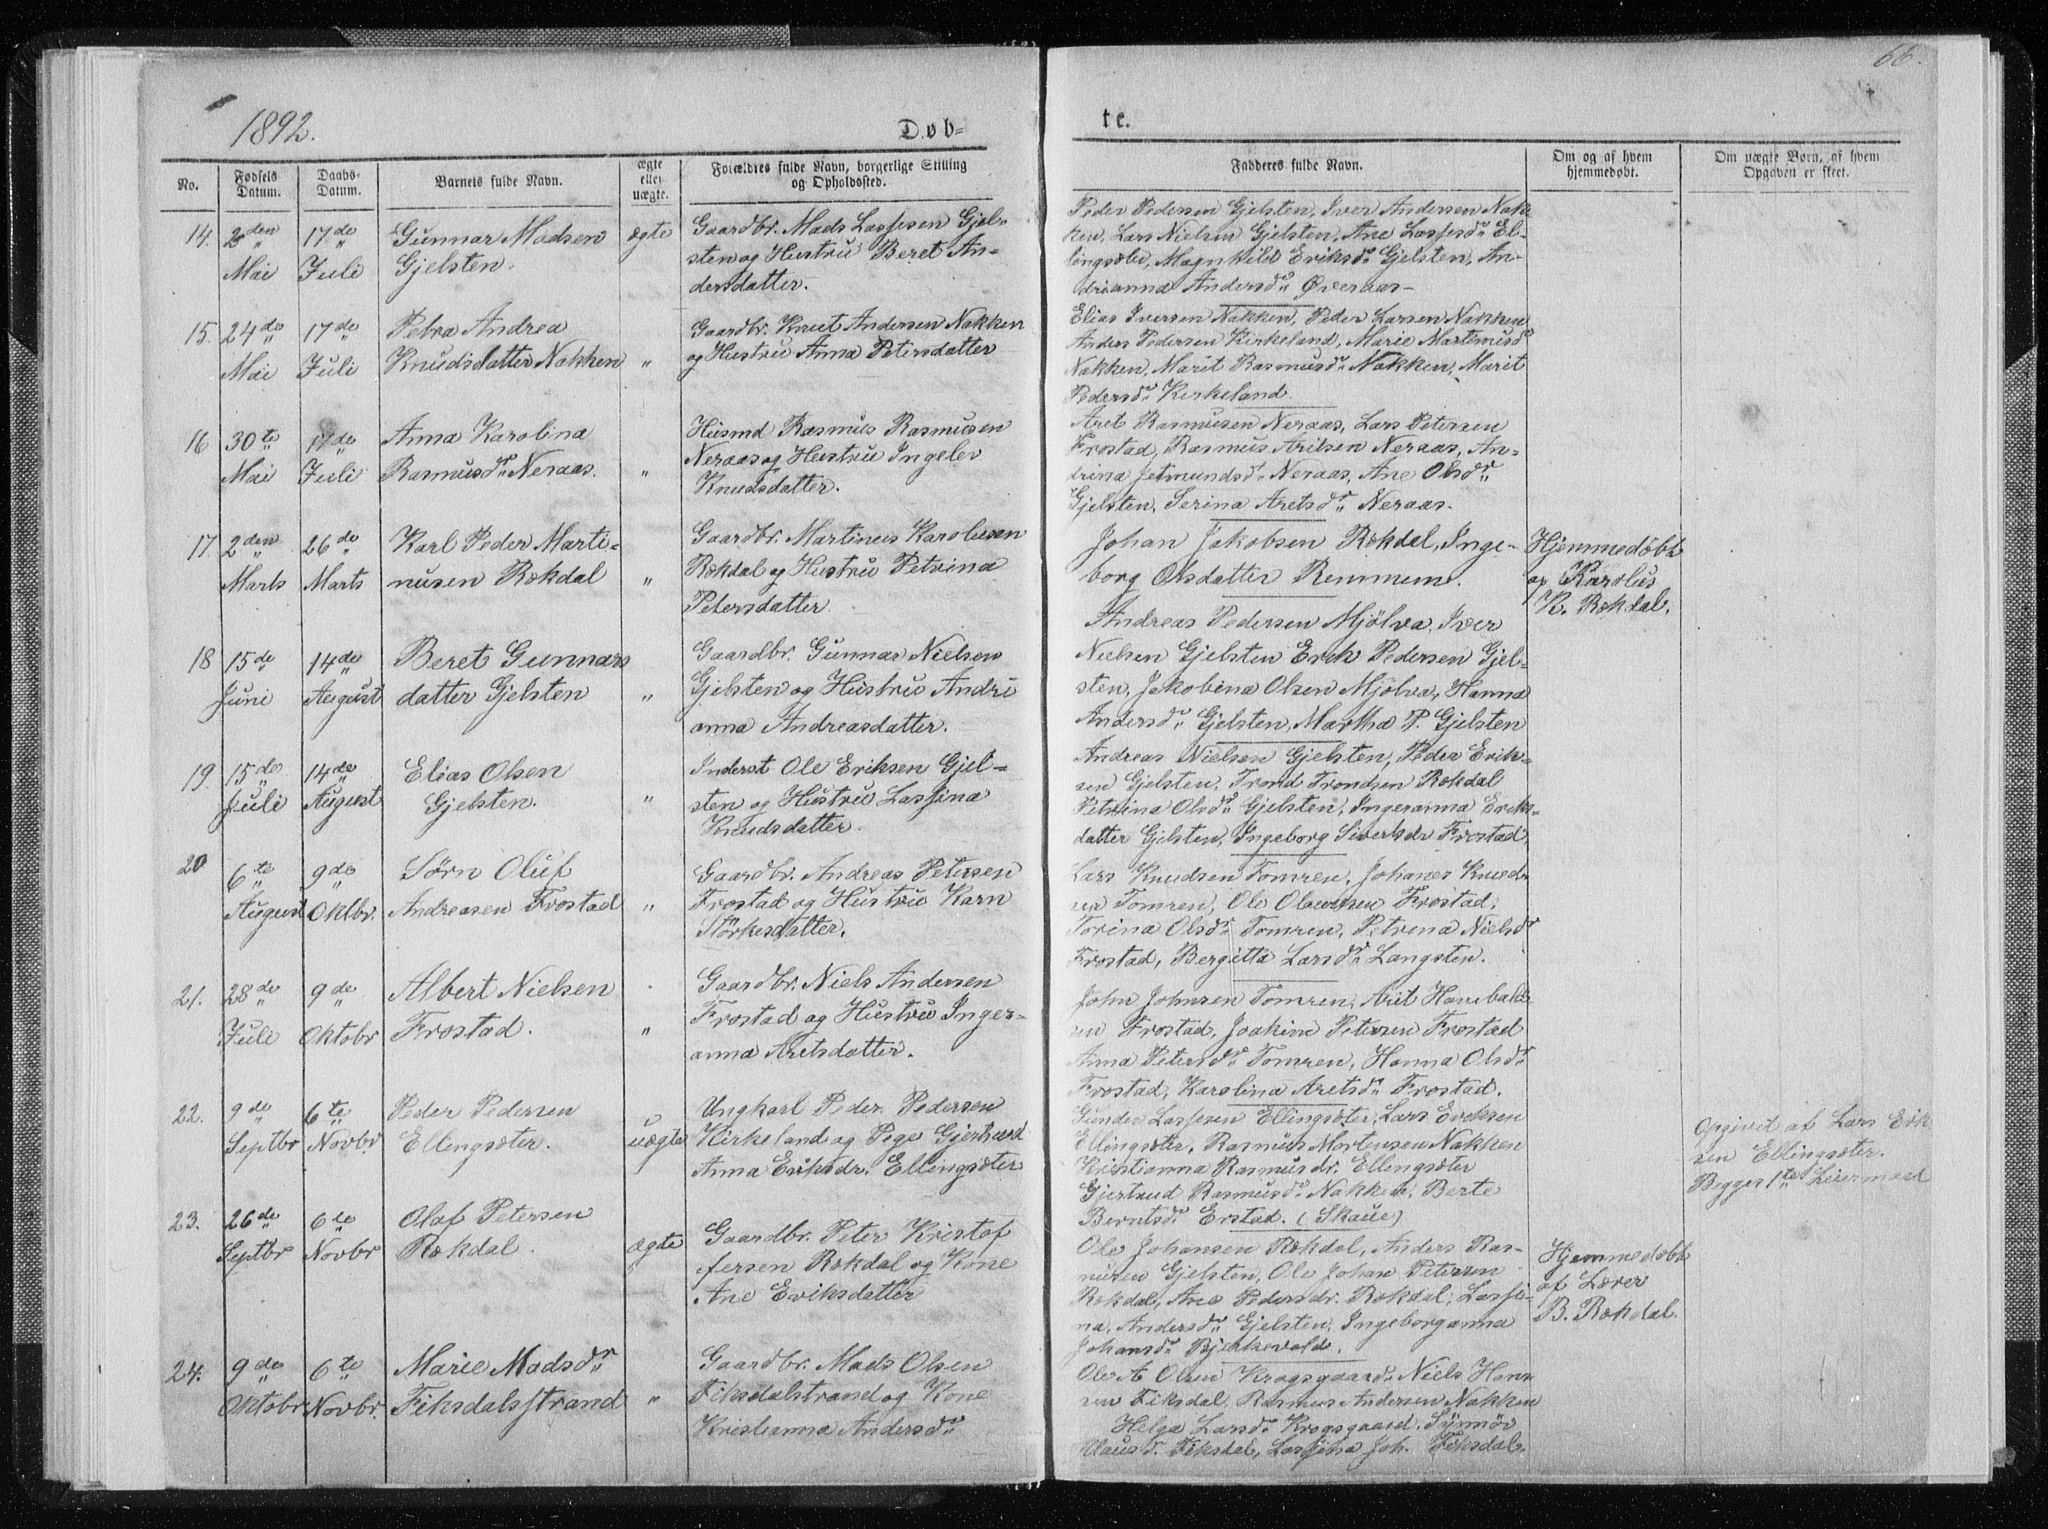 66.
1892.
Døb=
te.
No.
Fødsels Datum.
Daabs-Datum.
Barnets fulde Navn.
ægte eller uægte.
Forældres fulde Navn, borgerlige Stilling og Opholdssted.
Fadderes fulde Navn.
Om og af hvem hjemmedøbt.
Om uægte Børn, af hvem Opgaven er skeet.
14. 2den Mai
17de Juli
Gunnar Madsen
Gjelsten.
ægte
Gaardbr. Mads Lassesen Gjel-
sten og Hustru Beret An-
dersdatter.
Peder Pedersen Gjelsten, Iver Andersen Nak-
ken, Lars Nielsen Gjelsten, Ane Lassesdr El-
lingsæter, Magnhild Eriksdr Gjelsten, An-
drianna Andersdr Øveraas-
15. 24de Mai
17de Juli
Petra Andrea
Knudsdatter Nakken
"
Gaardbr. Knut Andersen Nakken
og Hustru Anna Petersdatter
Elias Iversen Nakken, Peder Larsen Nakken
Anders Pedersen Kirkeland, Marie Martinusdr
Nakken, Marit Rasmusdr Nakken, Marit
Pedersdr Kirkeland.
16 30te Mai
17de Juli
Anna Karolina
Rasmusdr Neraas.
"
Husmd Rasmus Rasmusen
Neraas og Hustru Ingelev
Knudsdatter.
Aret Rasmusen Neraas, Lars Petersen
Frostad, Rasmus Aritsen Neraas, An-
drina Jetmundsdr Neraas, Ane Olsdr
Gjelsten, Serina Aretsdr Neraas.
17. 2den Marts
26de Marts
Karl Peder Marti-
nusen Rekdal
"
Gaardbr. Martinus Karolusen
Rekdal og Hustru Petrina
Petersdatter.
Johan Jakobsen Rekdal, Inge-
borg Olsdatter Remmem.
Hjemmedøbt
af Karolus
K. Rekdal.
18 15de Juni
14de August
Beret Gunnars
datter Gjelsten
"
Gaardbr. Gunnar Nielsen
Gjelsten og Hustru Andri
anna Andreasdatter.
Andreas Pedersen Mjölva, Iver
Nielsen Gjelsten Erik Pedersen Gjel-
sten, Jakobina Olsen Mjölva, Hanna
Andersdr Gjelsten, Martha P. Gjelsten
19. 15de Juli
14de August
Elias Olsen
Gjelsten.
"
Inderst Ole Eriksen Gjel-
sten og Hustru Lassina
Knudsdatter.
Andreas Nielsen Gjelsten, Peder Erik-
sen Gjelsten, Trond Trondsen Rekdal
Petrina Olsdr Gjelsten, Ingeranna Eriks-
datter Gjelsten, Ingeborg Sivertsdr Frostad.
20 6te August
9de Oktbr.
Sörn Oluf
Andreasen Frostad
"
Gaardbr. Andreas Petersen
Frostad og Hustru Karn
Störkesdatter.
Lars Knudsen Tomren, Johanes Knud-
sen Tomren, Ole Frostad,
Torina Olsdr Tomren, Petrina Nielsdr
Frostad, Bergitta Larsdr Langsten.
21. 28de Juli
9de Oktobr
Albert Nielsen
Frostad.
"
Gaardbr. Niels Andersen
Frostad og Hustru Inger-
anna Aretsdatter.
John Johnsen Tomren, Arit
sen Frostad, Joakim Petersen Frostad
Anna Petersdr Tomren, Hanna Olsdr
Frostad, Karolina Aretsdr Frostad.
22. 9de Septbr
6te Novbr.
Peder Pedersen
Ellingsæter.
uægte
Ungkarl Peder Pedersen
Kirkeland og Pige Gjertrud
Anna Eriksdr. Ellingsæter
Gunder Lassesen Ellingsæter, Lars Eriksen
Ellingsæter, Rasmus Mortensen Nakken
Kristianna Rasmusdr. Ellingsæter
Gjertrud Rasmusdr Nakken, Berte
Berntsdr Erstad. (Skaue)
Opgivet af Lars Erik
sen Ellingsæter.
Begges 1ste Leiermaal
23. 26de Septbr
6te Novbr
Olaf Petersen
Rekdal.
ægte
Gaardbr. Peter Kristof
fersen Rekdal og Kone
Ane Eriksdatter
Ole Johansen Rekdal, Anders Ras-
musen Gjelsten, Ole Johan Petersen
Rekdal, Ane Pedersdr. Rekdal, Lassi-
na, Andersdr Gjelsten, Ingeborganna
Johansdr Bjerkevold.
Hjemmedøbt
af Lærer
B. Rekdal.
24. 9de Oktobr
6te Novbr.
Marie Madsdr
Fiksdalsstrand
"
Gaardbr. Mads Olsen
Fiksdalstrand og Kone
Kristianna Andersdr
Ole A Olsen Krogsgaard Niels Han-
sen Fiksdal, Rasmus Andersen Nakken
Helga Larsdr Krogsgaard, Synnöv
Clausd. Fiksdal, Lassina Joh. Fiksdal.